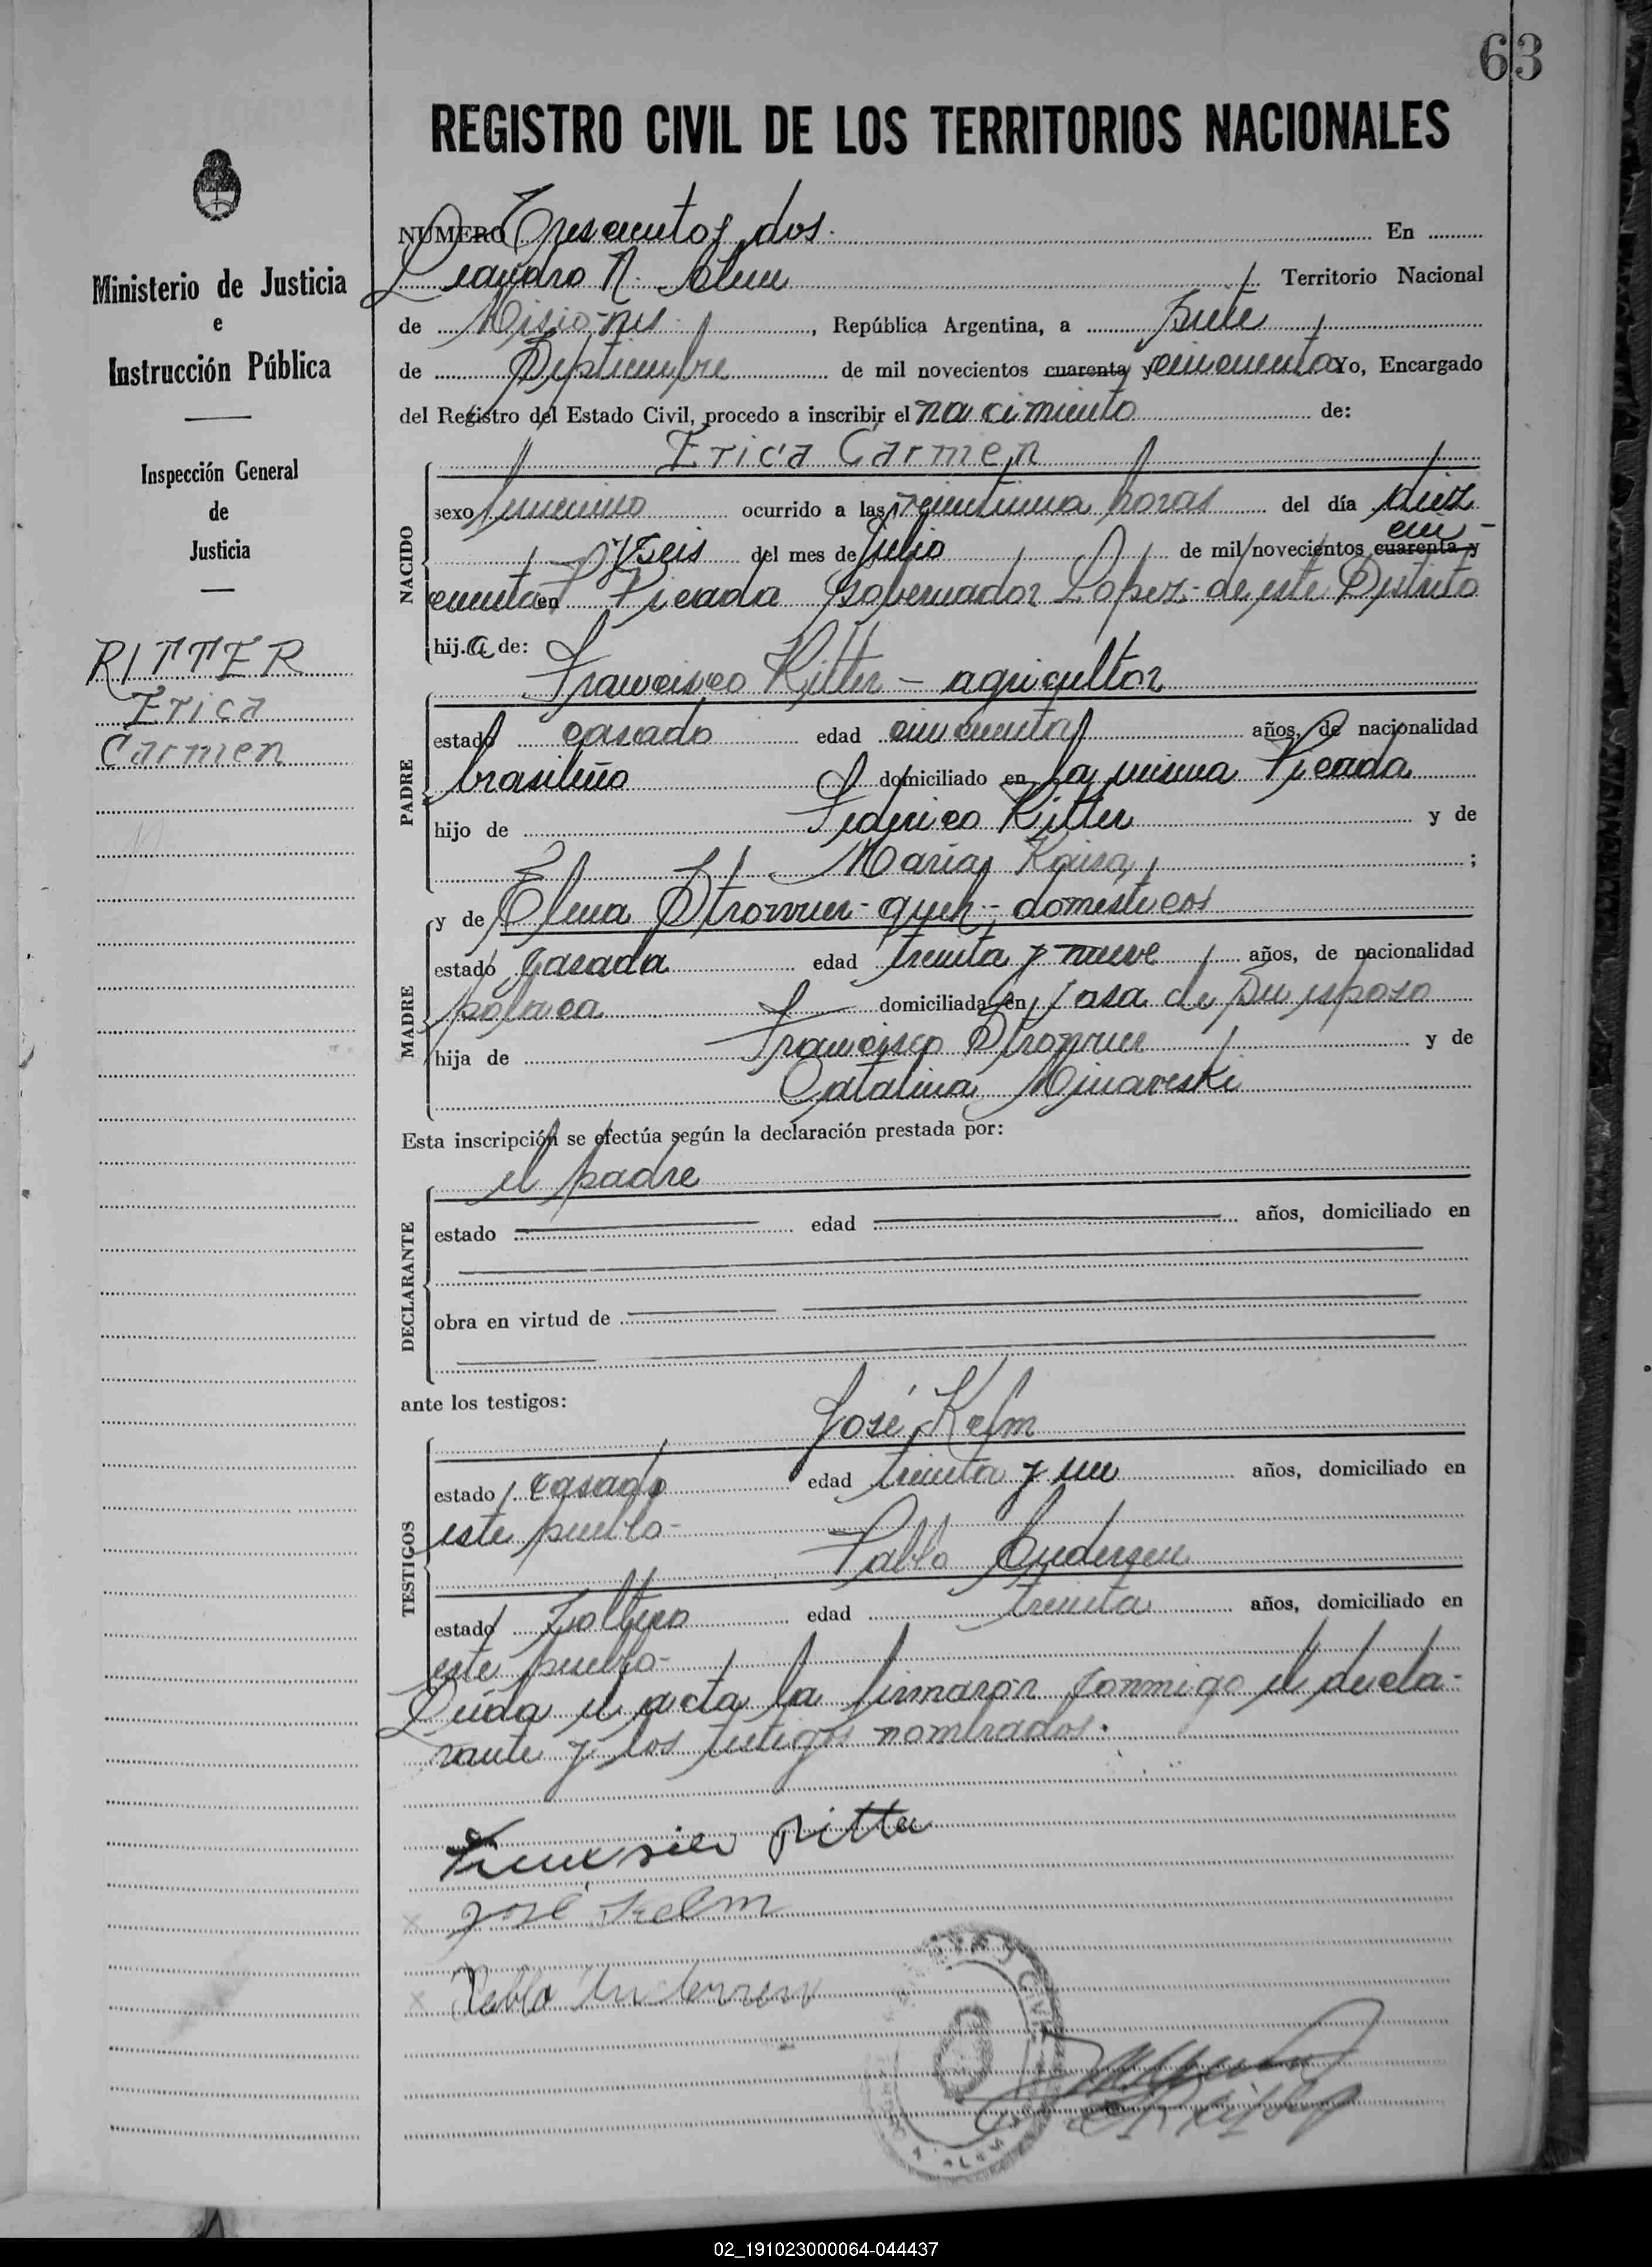 63
REGISTRO CIVIL DE LOS TERRITORIOS NACIONALES
Ministerio de Justicia
e
Instrucción Pública
Inspección General
de
Justicia
RITTER
Erica
Carmen
NUMERO Trescientos dos. En
Leandro N. Alem Territorio Nacional
de Misiones, República Argentina, a siete
de Septiembre de mil novecientos cuarenta y cincuenta Yo, Encargado
del Registro del Estado Civil, procedo a inscribir el nacimiento de:
Erica Carmen
NACIDO
sexo femenino ocurrido a las veintiuna horas del día diez
y seis del mes de Julio de mil novecientos cuarenta y cin-
cuenta en Picada Gobernador Lopez- de este Distrito
hija de:
Francisco Ritter - agricultor
PADRE
estado casado edad cincuenta años, de nacionalidad
brasileño domiciliado en la misma Picada
hijo de Federico Ritter y de
Maria Kaisa;
MADRE
y de Elena - queh- domésticos
estado casada edad treinta y nueve años, de nacionalidad
polaca domiciliada en casa de su esposo
hija de Francisco y de
Catalina
Esta inscripción se efectúa según la declaración prestada por:
el padre
DECLARANTE
estado edad años, domiciliado en
obra en virtud de
ante los testigos:
José Kelm
TESTIGOS
estado casado edad treinta y un años, domiciliado en
este pueblo-
Pablo Andersen
estado soltero edad treinta años, domiciliado en
este pueblo-
Leida el acta la firmaron conmigo el decla-
rante y los testigos nombrados.
Ritter
José Kelm
Pablo Andersen
02_191023000064-044437